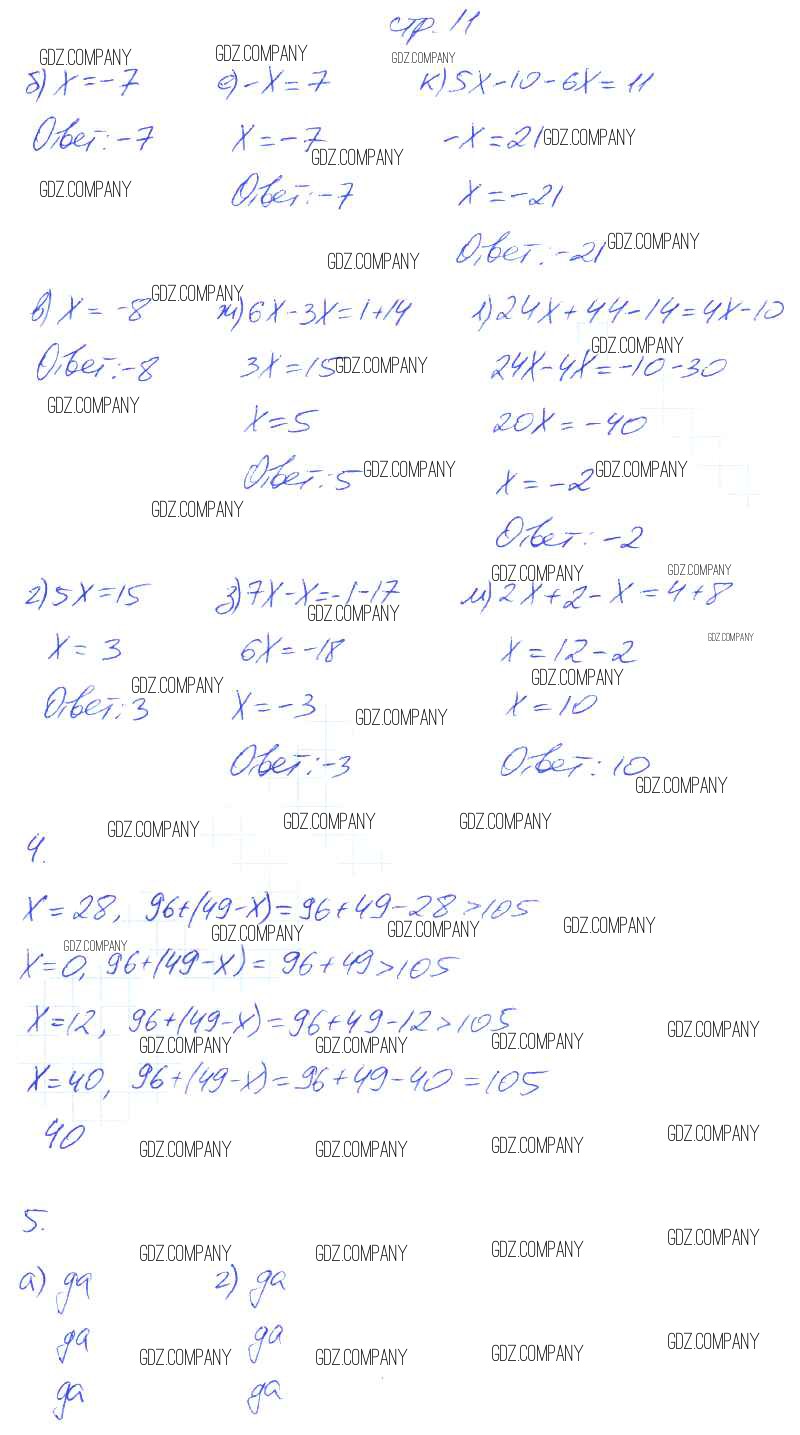 стр. 11
GDZ.COMPANY GDZ.COMPANY GDZ.COMPANY
б) x=-7 е) -x=7 к) 5x-10-6x=11
Ответ: -7 x=-7 -x=21 GDZ.COMPANY
GDZ.COMPANY
GDZ.COMPANY Ответ: -7 x=-21
Ответ: -21 GDZ.COMPANY
GDZ.COMPANY
GDZ.COMPANY
в) x=-8 ж) 6x-3x=1+14 л) 24x+44-14=4x-10
GDZ.COMPANY
Ответ: -8 3x=15 GDZ.COMPANY 24x-4x=-10-30
GDZ.COMPANY
x=5 20x=-40
Ответ: 5 GDZ.COMPANY x=-2 GDZ.COMPANY
GDZ.COMPANY
Ответ: -2
GDZ.COMPANY GDZ.COMPANY
г) 5x=15 з) 7x-x=-1-17 м) 2x+2-x=4+8
GDZ.COMPANY
GDZ.COMPANY
x=3 6x=-18 x=12-2
GDZ.COMPANY GDZ.COMPANY
Ответ: 3 x=-3 x=10
GDZ.COMPANY
Ответ: -3 Ответ: 10
GDZ.COMPANY
GDZ.COMPANY GDZ.COMPANY GDZ.COMPANY
4.
x=28, 96+(49-x)=96+49-28>105
GDZ.COMPANY GDZ.COMPANY GDZ.COMPANY
GDZ.COMPANY
x=0, 96+(49-x)=96+49>105
x=12, 96+(49-x)=96+49-12>105
GDZ.COMPANY GDZ.COMPANY GDZ.COMPANY GDZ.COMPANY
x=40, 96+(49-x)=96+49-40=105
40
GDZ.COMPANY GDZ.COMPANY GDZ.COMPANY GDZ.COMPANY
5.
GDZ.COMPANY GDZ.COMPANY GDZ.COMPANY GDZ.COMPANY
а) да г) да
да да
GDZ.COMPANY GDZ.COMPANY GDZ.COMPANY GDZ.COMPANY
да да